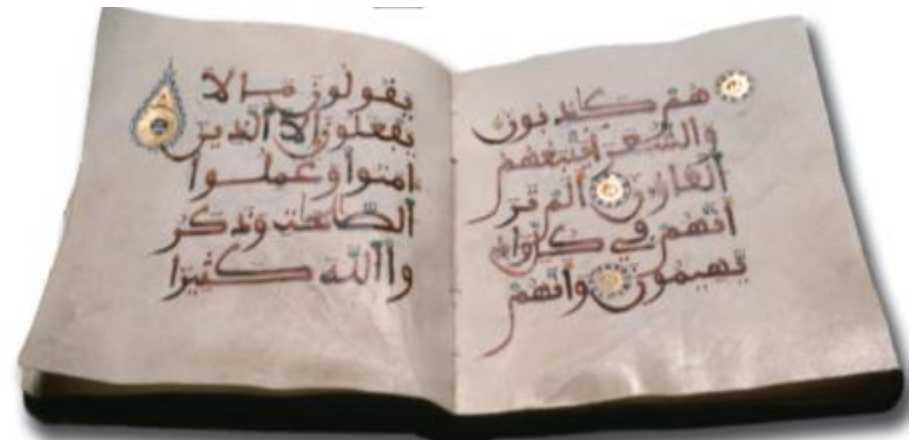 هم كاذبون
والشعرا يتبعهم
الغاوون ألم تر
أنهم في كل واد
يهيمون وأنهم
يقولون ما لا
يفعلون إلا الذين
امنوا وعملوا
الصالحات وذكر
وا الله كثيرا